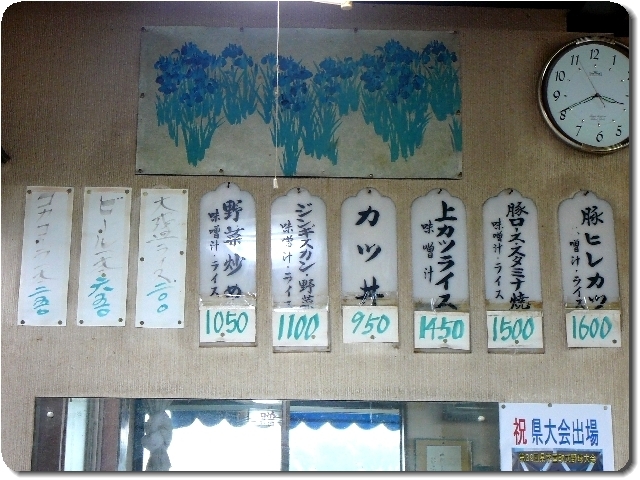 豚ヒレカツ
味噌汁・ライス
1600
豚ローススタミナ焼
味噌汁・ライス
1500
上カツライス
味噌汁
1450
カツ丼
950
ジンギスカン・野菜
味噌汁・ライス
1100
野菜炒め
味噌汁・ライス
1050
二〇〇
ビール
六五〇
二五〇
12
1
2
3
4
5
6
7
8
9
10
11
祝 県大会出場